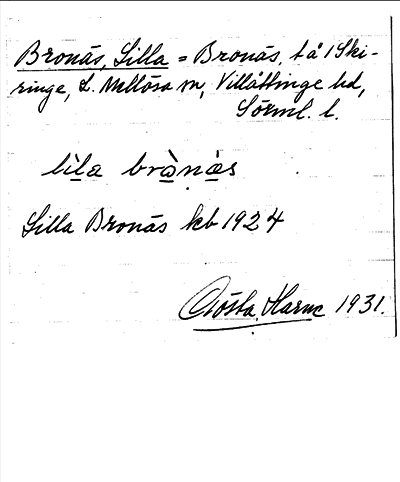 Bronäs, Lilla = Bronäs, t å 1 Ski-
ringe, L. Mellösa sn, Villåttinge hd,
Sörml. l.
lìla brònàs
Lilla Bronäs kb 1924
Gösta Harne 1931.